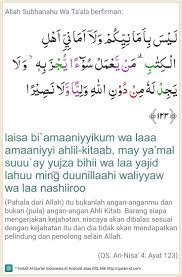 Allah Subhanahu Wa Ta'ala berfirman:
لَيْسَ بِاَمَانِيِّكُمْ وَلَاۤ اَمَانِيِّ اَهْلِ
الْكِتٰبِ ۗ مَنْ يَّعْمَلْ سُوْٓءًا يُّجْزَ بِهٖ ۙ وَلَا
يَجِدْ لَهٗ مِنْ دُوْنِ اللّٰهِ وَلِيًّا وَّلَا نَصِيْرًا
﴿١٢٣﴾
laisa bi`amaaniyyikum wa laaa
amaaniyyi ahlil-kitaab, may ya'mal
suuu`ay yujza bihii wa laa yajid
lahuu ming duunillaahi waliyyaw
wa laa nashiiroo
(Pahala dari Allah) itu bukanlah angan-anganmu dan
bukan (pula) angan-angan Ahli Kitab. Barang siapa
mengerjakan kejahatan, niscaya akan dibalas sesuai
dengan kejahatan itu dan dia tidak akan mendapatkan
pelindung dan penolong selain Allah.
(QS. An-Nisa' 4: Ayat 123)
* Install Al-Qur'an Indonesia di Android atau iOS, klik http://quran-id.com